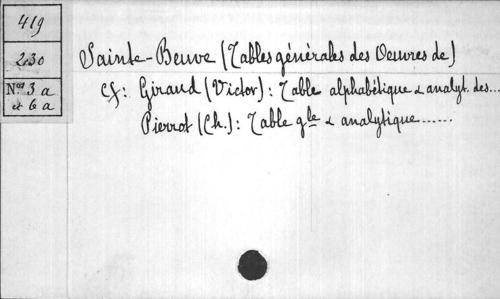 419
2.30
Nos 3 a
et 6 a
Sainte-Beuve (Tables générales des Oeuvres de)
cf: Giraud (Victor): Table alphabétique & analyt. des...
Pierrot (Ch.): Table gle & analytique......